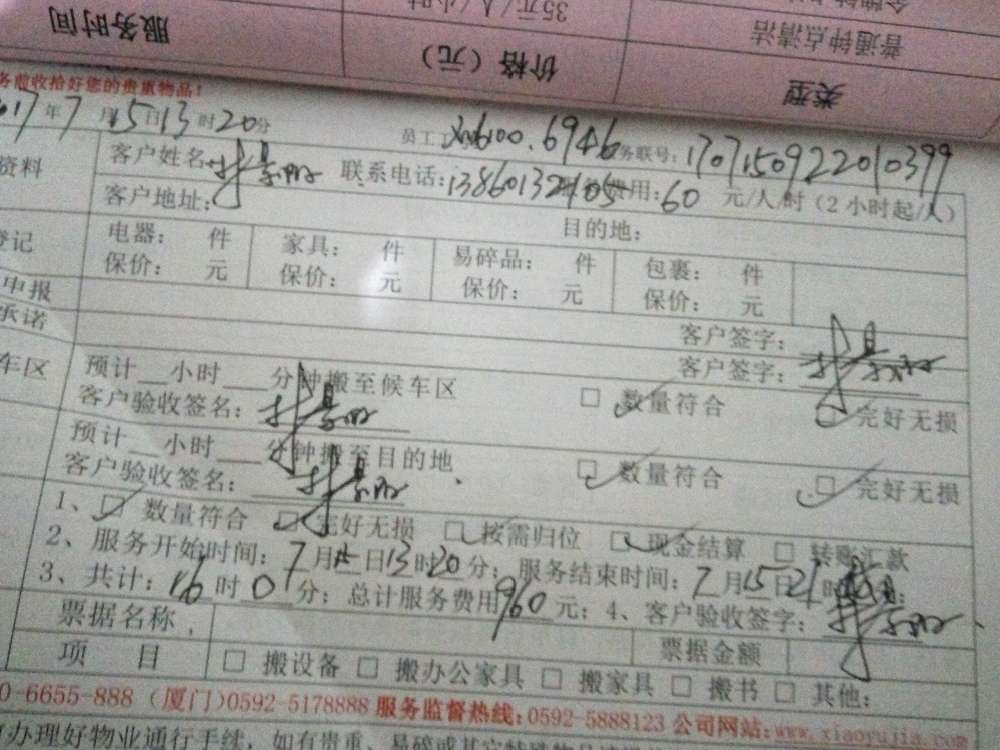 35元/人/小时
普通钟点清洁
服务时间
价格（元）
类型
务前收拾好您的贵重物品！
2017年7月15日13时20分
员工工
务联号：1707150922010399
资料
客户姓名：
联系电话：
费用：60元/人/时（2小时起/人）
客户地址：
目的地：
登记
电器： 件 家具： 件 易碎品： 件 包裹： 件
保价： 元 保价： 元 保价： 元 保价： 元
申报
客户签字：
承诺
客户签字：
车区
预计__小时__分钟搬至候车区
□ 数量符合 □ 完好无损
客户验收签名：
预计__小时__分钟搬至目的地
□ 数量符合 □ 完好无损
客户验收签名：
1、□ 数量符合 □ 完好无损 □ 按需归位 □ 现金结算 □ 转账汇款
2、服务开始时间：7月15日13时20分；服务结束时间：7月15日21时
3、共计：16时0分；总计服务费用960元；4、客户验收签字：
票据名称
票据金额
项 目 □ 搬设备 □ 搬办公家具 □ 搬家具 □ 搬书 □ 其他：
0-6655-888（厦门）0592-5178888 服务监督热线：0592-5888123 公司网站：www.xiaoyujia.com
办理好物业通行手续，如有贵重、易碎或其它特殊物品请